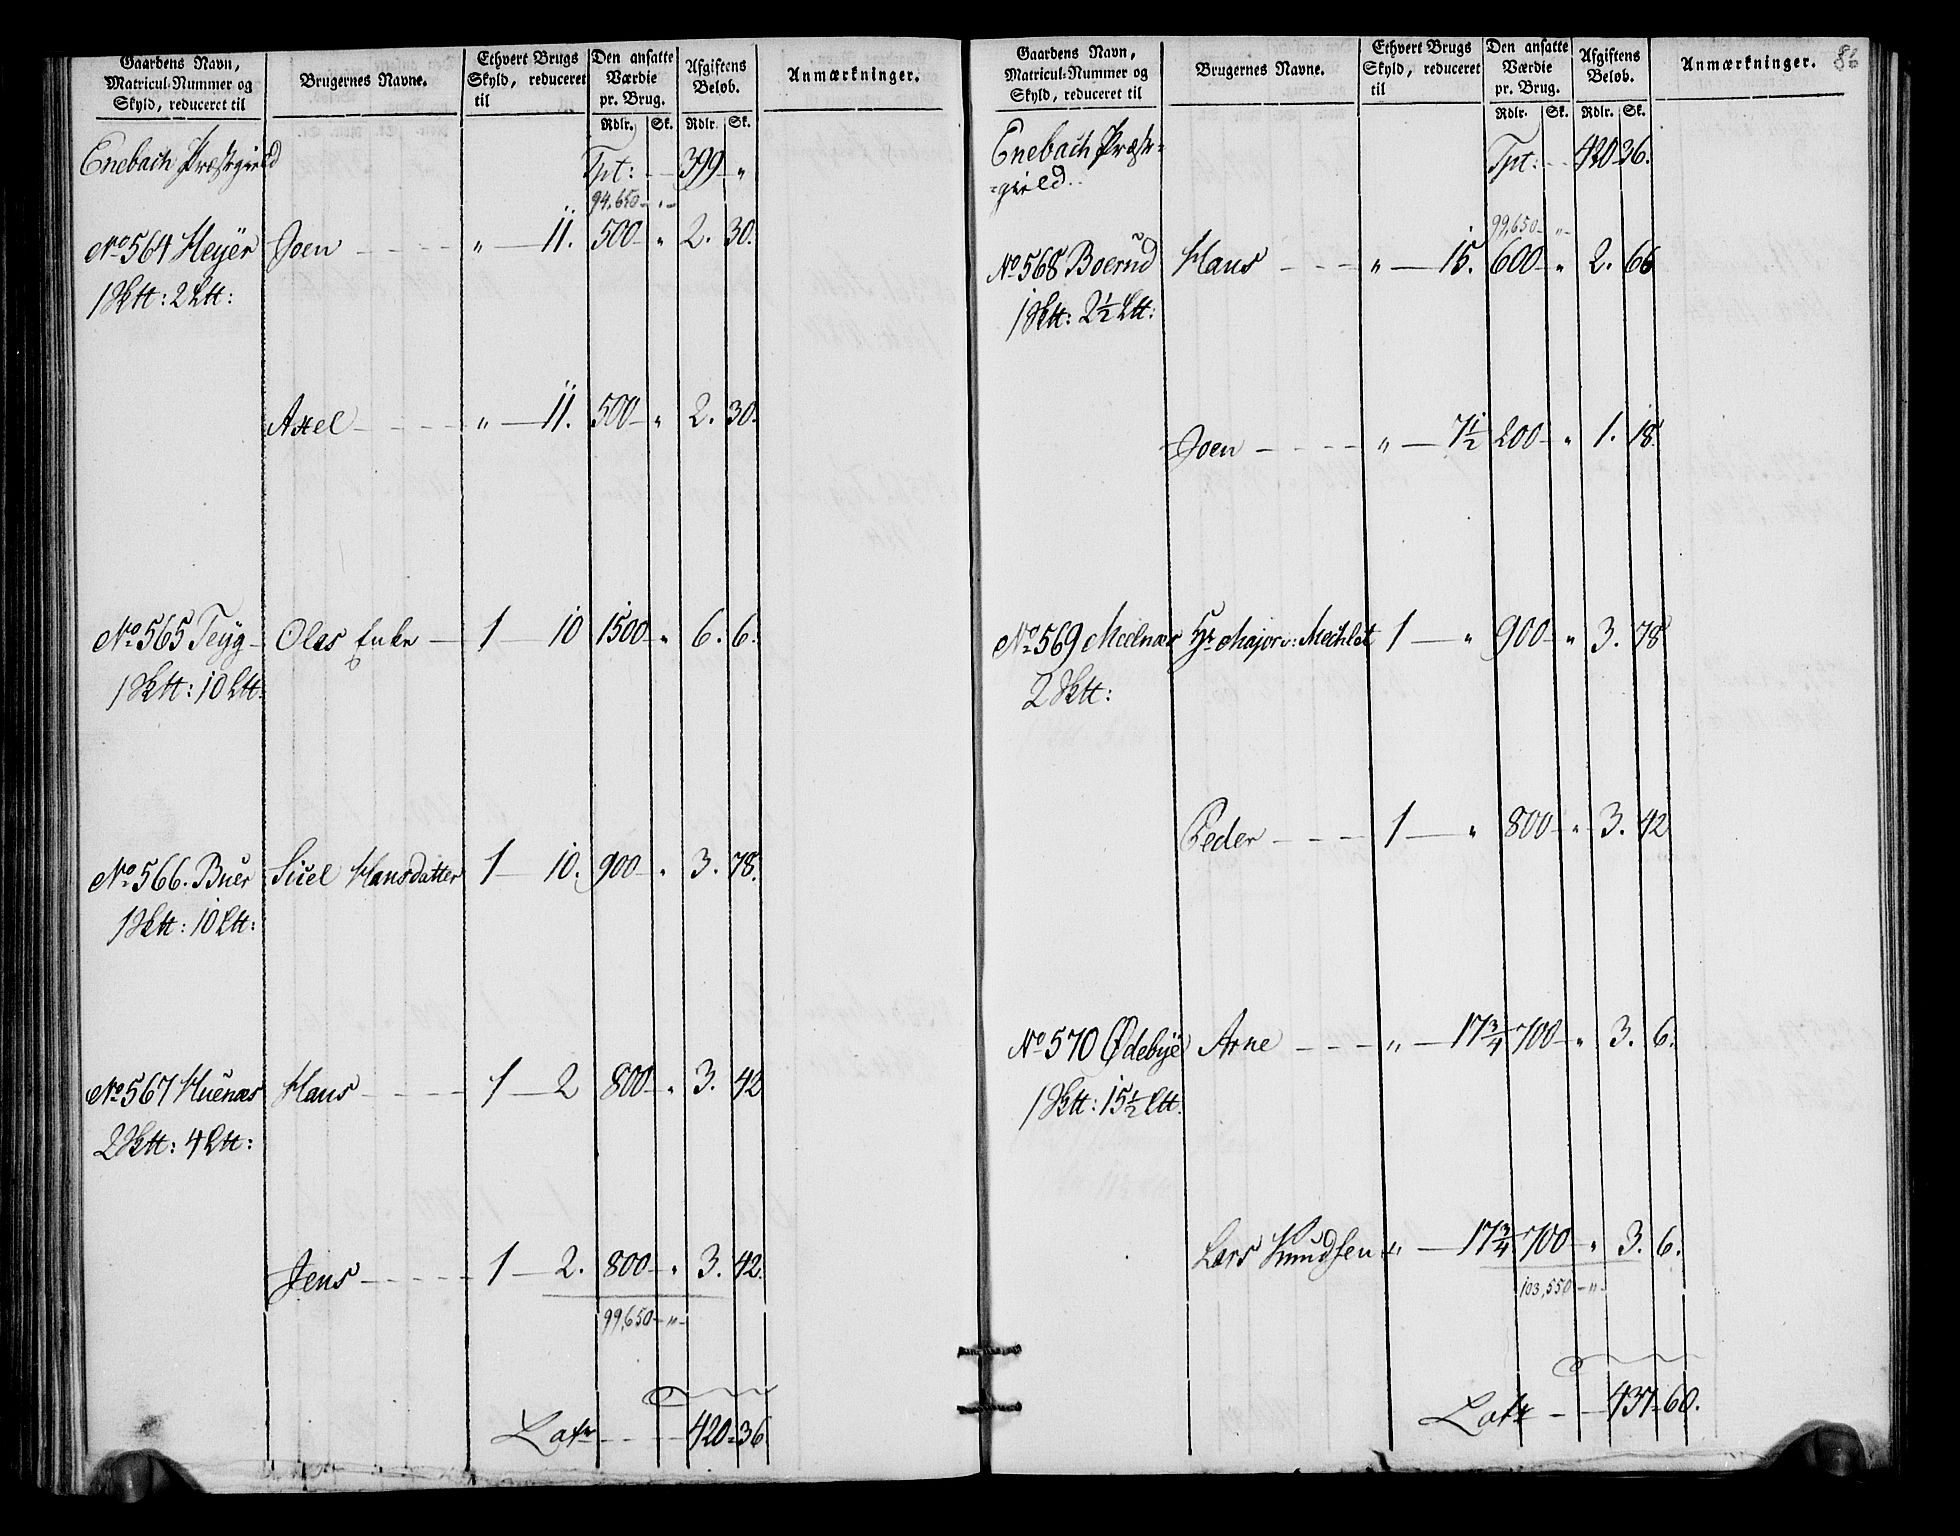 Gaardens Navn, Matricul-Nummer og Skyld, reduceret til | Brugernes Navne. | Ethvert Brugs Skyld, reduceret til | Den ansatte Værdie pr. Brug. | Afgiftens Beløb. | Anmærkninger.
Rdlr. | Sk. | Rdlr. | Sk.
Enebach Præstegield Tpt: 399 „
94,650 „
No 564 Heyer Joen „ 11. 500 „ 2. 30.
1 Sktt: 2 Ltt:
Axel „ 11. 500 „ 2. 30.
No 565 Teyg Oles Enke 1 10 1500 „ 6. 6.
1 Sktt: 10 Ltt:
No 566. Buer Siicel Hansdatter 1 10. 900 „ 3. 78.
1 Sktt: 10 Ltt:
No 567 Huenæs Hans 1 2 800 „ 3. 42
2 Sktt: 4 Ltt:
Jens 1 2. 800 „ 3. 42.
99,650 „
Latr 420 36
86
Gaardens Navn, Matricul-Nummer og Skyld, reduceret til | Brugernes Navne. | Ethvert Brugs Skyld, reduceret til | Den ansatte Værdie pr. Brug. | Afgiftens Beløb. | Anmærkninger.
Rdlr. | Sk. | Rdlr. | Sk.
Enebach Præste=
=gield Tpt: 420 36.
99,650 „
No 568 Boerud Hans „ 15. 600 „ 2. 66
1 Sktt: 2½ Ltt:
Joen „ 7½ 200 „ 1. 18.
No 569 Melnæs Hr Major v: Mechlet 1 „ 900 „ 3. 78
2 Sktt:
Peder 1 „ 800 „ 3. 42
No 570 Ødebye Arne „ 17¾ 700 „ 3. 6.
1 Sktt: 15½ Ltt:
Lars Knudsen „ 17¾ 700 „ 3. 6.
103,550 „
Latr 437 60.